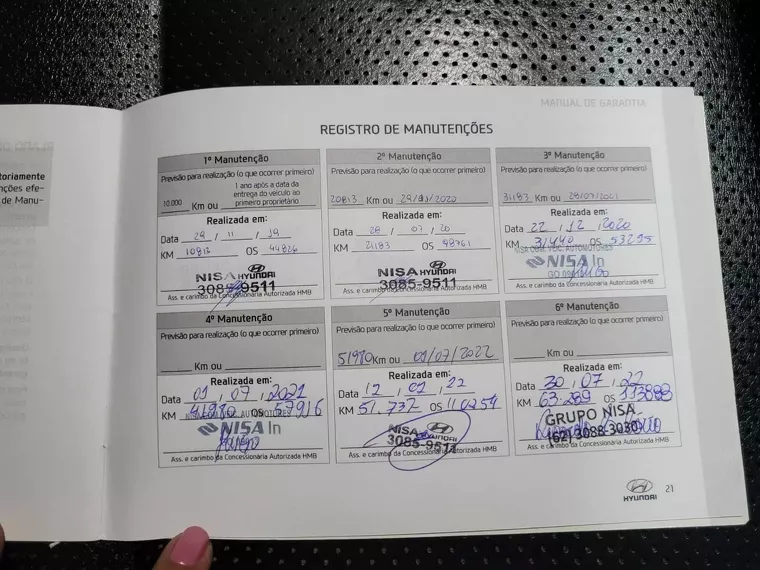 toriamente
nções efe-
de Manu-
MANUAL DE GARANTIA
REGISTRO DE MANUTENÇÕES
1º Manutenção
Previsão para realização (o que ocorrer primeiro)
10.000 Km ou 1 ano após a data da entrega do veículo ao primeiro proprietário
Realizada em:
Data 29 / 11 / 19
KM 10813 OS 44826
NISA HYUNDAI
3085-9511
Ass. e carimbo da Concessionária Autorizada HMB
2º Manutenção
Previsão para realização (o que ocorrer primeiro)
20813 Km ou 29/11/2020
Realizada em:
Data 28 / 07 / 20
KM 21183 OS 98761
NISA HYUNDAI
3085-9511
Ass. e carimbo da Concessionária Autorizada HMB
3º Manutenção
Previsão para realização (o que ocorrer primeiro)
31183 Km ou 28/07/2021
Realizada em:
Data 22 / 12 / 2020
KM 31440 OS 53295
NISA COM. VEIC. AUTOMOTORES
NISA In
Ass. e carimbo da Concessionária Autorizada HMB
4º Manutenção
Previsão para realização (o que ocorrer primeiro)
Km ou
Realizada em:
Data 01 / 07 / 2021
KM 41980 OS 57916
AUTOMOTORES
NISA In
Ass. e carimbo da Concessionária Autorizada HMB
5º Manutenção
Previsão para realização (o que ocorrer primeiro)
51980 Km ou 01/07/2022
Realizada em:
Data 12 / 01 / 22
KM 51.737 OS 110254
NISA HYUNDAI
3085-9511
Ass. e carimbo da Concessionária Autorizada HMB
6º Manutenção
Previsão para realização (o que ocorrer primeiro)
Km ou
Realizada em:
Data 30 / 07 / 22
KM 63.289 OS 113888
GRUPO NISA
(62) 3088-3030
Ass. e carimbo da Concessionária Autorizada HMB
HYUNDAI
21